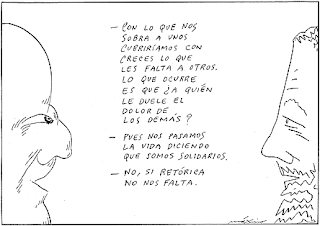 — CON LO QUE NOS
SOBRA A UNOS
CUBRIRÍAMOS CON
CRECES LO QUE
LES FALTA A OTROS.
LO QUE OCURRE
ES QUE ¿A QUIÉN
LE DUELE EL
DOLOR DE
LOS DEMÁS?
— PUES NOS PASAMOS
LA VIDA DICIENDO
QUE SOMOS SOLIDARIOS.
— NO, SI RETÓRICA
NO NOS FALTA.